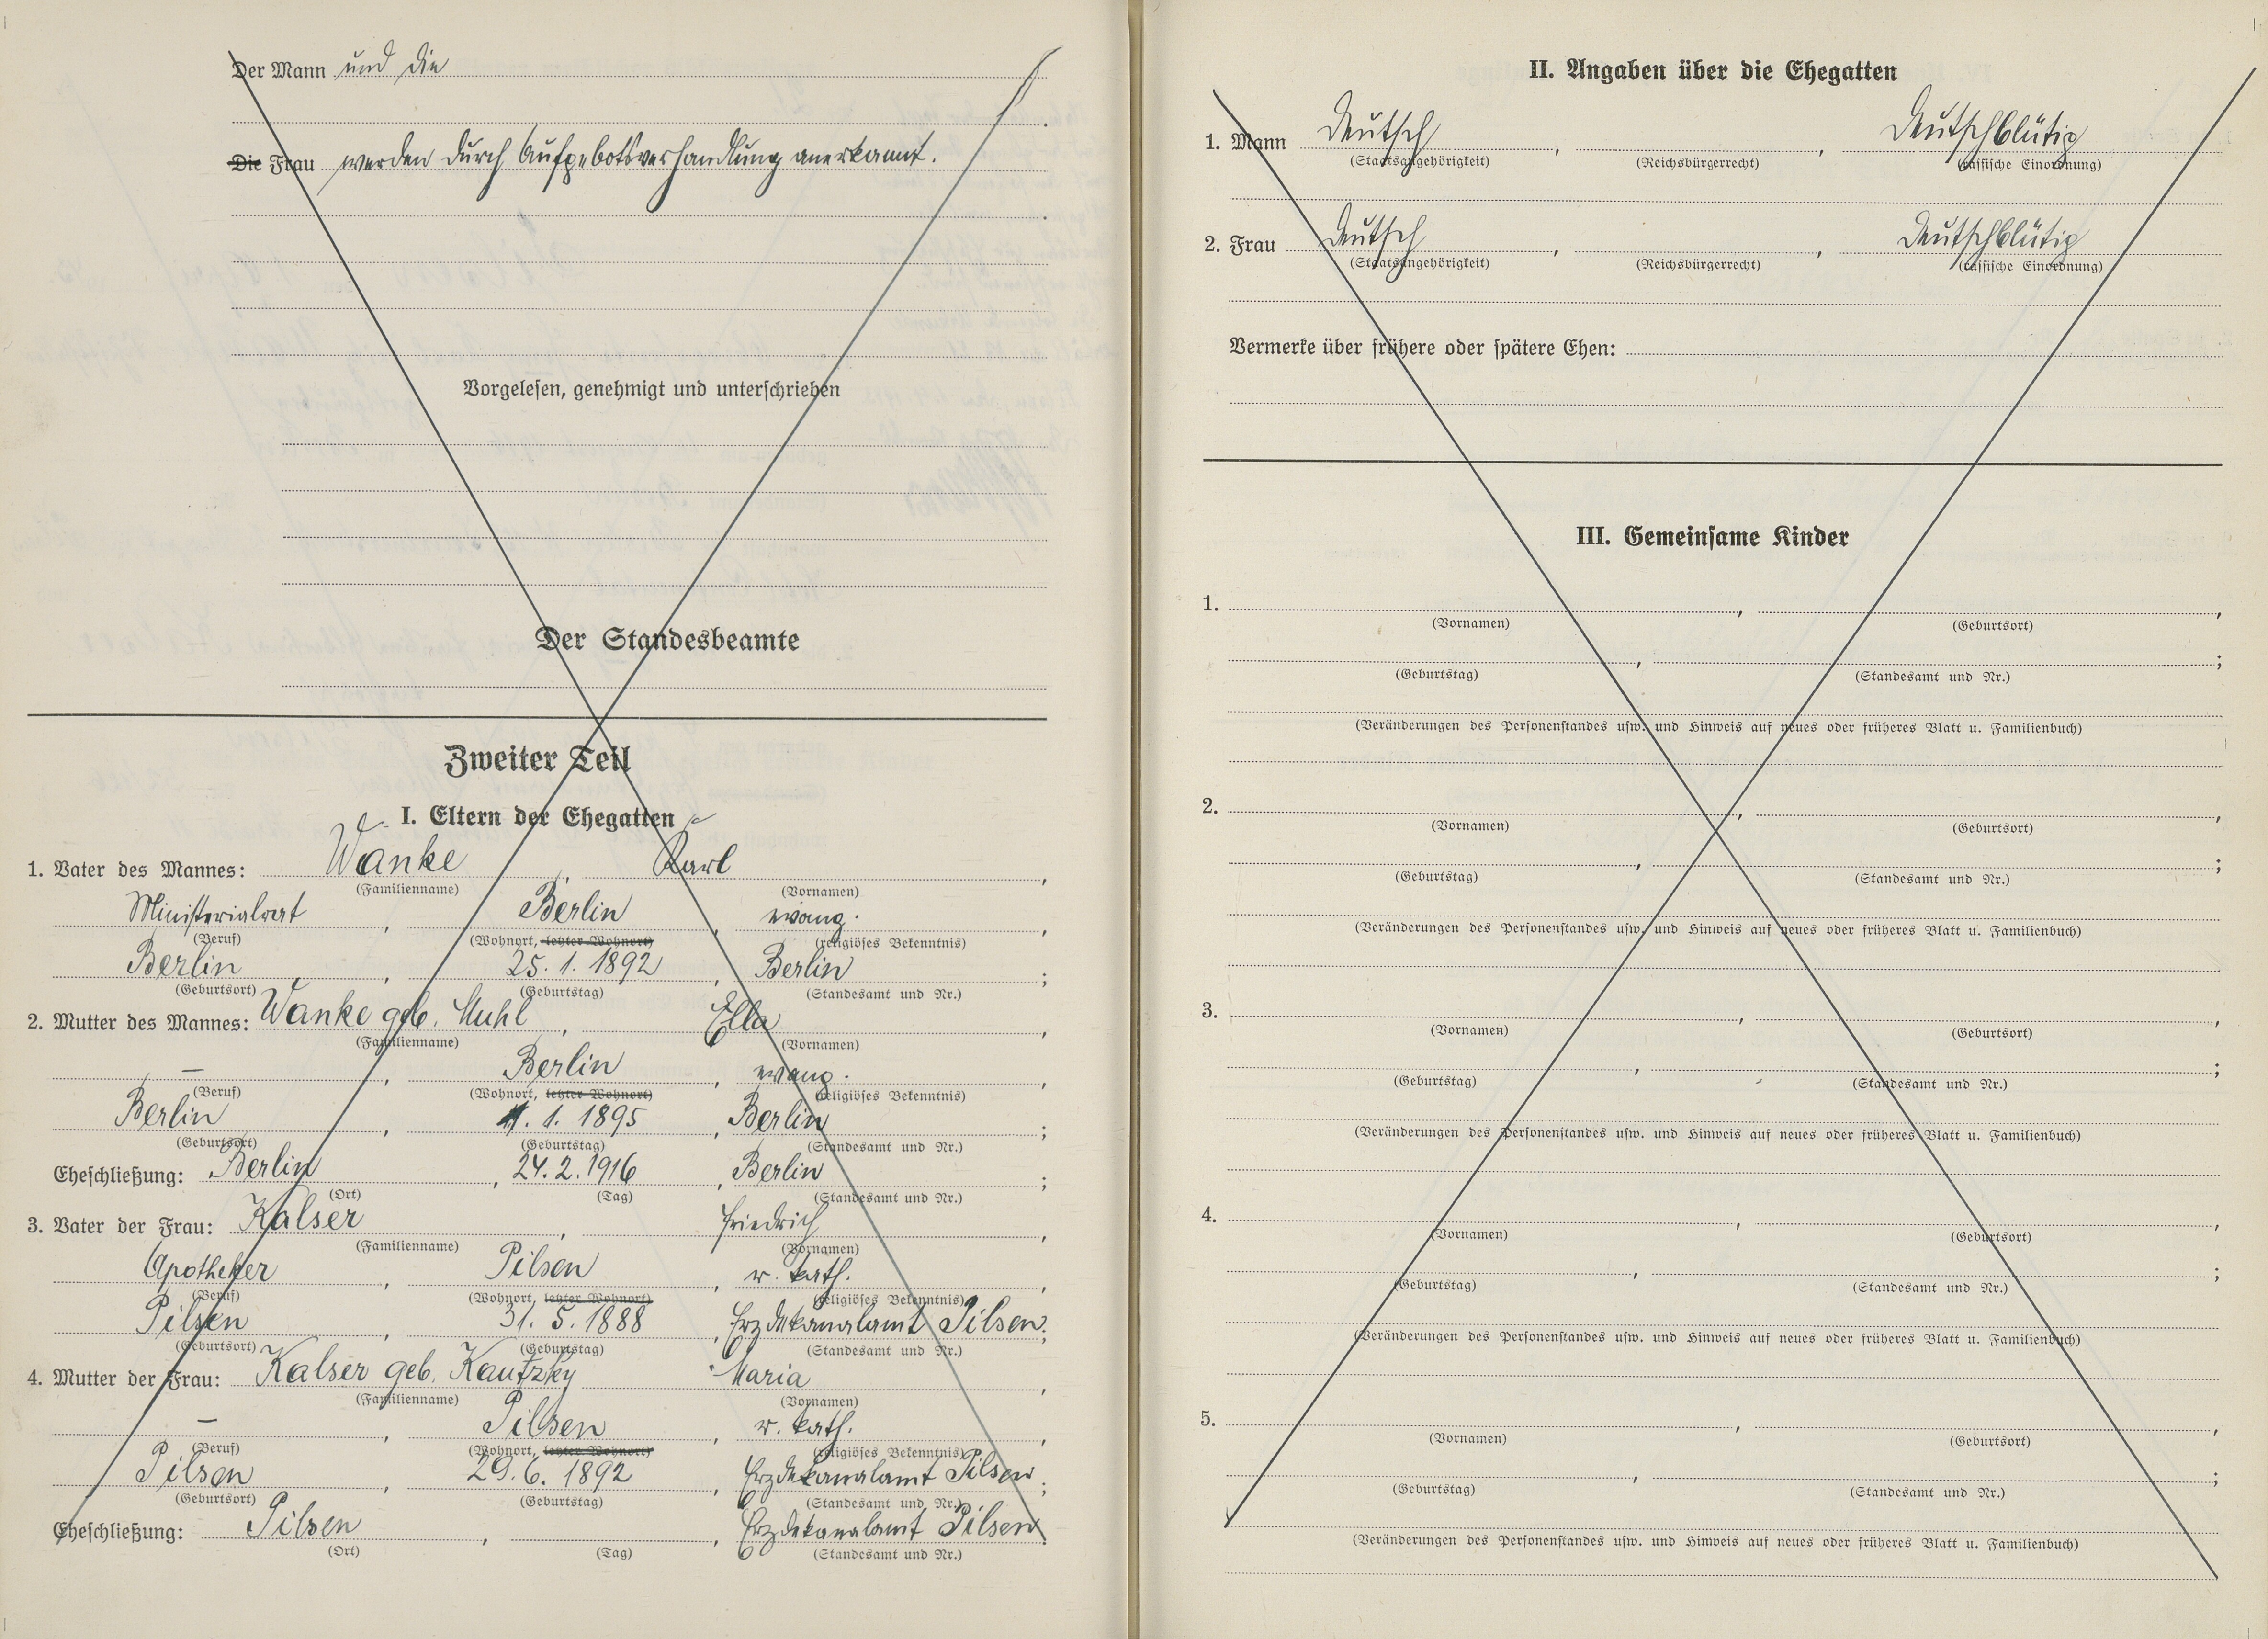 Der Mann und die
Die Frau werden durch Aufgebotsverhandlung anerkannt.
Vorgelesen, genehmigt und unterschrieben
Der Standesbeamte
Zweiter Teil
I. Eltern der Ehegatten
1. Vater des Mannes: Wanke, Karl,
(Familienname) (Vornamen)
Ministerialrat, Berlin, evang.,
(Beruf) (Wohnort, letzter Wohnort) (religiöses Bekenntnis)
Berlin, 25. 1. 1892, Berlin;
(Geburtsort) (Geburtstag) (Standesamt und Nr.)
2. Mutter des Mannes: Wanke geb. Muhl, Ella,
(Familienname) (Vornamen)
–, Berlin, evang.,
(Beruf) (Wohnort, letzter Wohnort) (religiöses Bekenntnis)
Berlin, 1. 1895, Berlin;
(Geburtsort) (Geburtstag) (Standesamt und Nr.)
Eheschließung: Berlin, 24. 2. 1916, Berlin;
(Ort) (Tag) (Standesamt und Nr.)
3. Vater der Frau: Kalser, Friedrich,
(Familienname) (Vornamen)
Apotheker, Pilsen, r. kath.,
(Beruf) (Wohnort, letzter Wohnort) (religiöses Bekenntnis)
Pilsen, 31. 5. 1888, Erzdekanalamt Pilsen;
(Geburtsort) (Geburtstag) (Standesamt und Nr.)
4. Mutter der Frau: Kalser geb. Kautzky Maria,
(Familienname) (Vornamen)
–, Pilsen, r. kath.,
(Beruf) (Wohnort, letzter Wohnort) (religiöses Bekenntnis)
Pilsen, 29. 6. 1892, Erzdekanalamt Pilsen;
(Geburtsort) (Geburtstag) (Standesamt und Nr.)
Eheschließung: Pilsen, , Erzdekanalamt Pilsen
(Ort) (Tag) (Standesamt und Nr.)
II. Angaben über die Ehegatten
1. Mann Deutsch, , Deutschblütig
(Staatsangehörigkeit) (Reichsbürgerrecht) (rassische Einordnung)
2. Frau Deutsch, , Deutschblütig
(Staatsangehörigkeit) (Reichsbürgerrecht) (rassische Einordnung)
Vermerke über frühere oder spätere Ehen:
III. Gemeinsame Kinder
1. , ,
(Vornamen) (Geburtsort)
, ;
(Geburtstag) (Standesamt und Nr.)
(Veränderungen des Personenstandes usw. und Hinweis auf neues oder früheres Blatt u. Familienbuch)
2. , ,
(Vornamen) (Geburtsort)
, ;
(Geburtstag) (Standesamt und Nr.)
(Veränderungen des Personenstandes usw. und Hinweis auf neues oder früheres Blatt u. Familienbuch)
3. , ,
(Vornamen) (Geburtsort)
, ;
(Geburtstag) (Standesamt und Nr.)
(Veränderungen des Personenstandes usw. und Hinweis auf neues oder früheres Blatt u. Familienbuch)
4. , ,
(Vornamen) (Geburtsort)
, ;
(Geburtstag) (Standesamt und Nr.)
(Veränderungen des Personenstandes usw. und Hinweis auf neues oder früheres Blatt u. Familienbuch)
5. , ,
(Vornamen) (Geburtsort)
, ;
(Geburtstag) (Standesamt und Nr.)
(Veränderungen des Personenstandes usw. und Hinweis auf neues oder früheres Blatt u. Familienbuch)